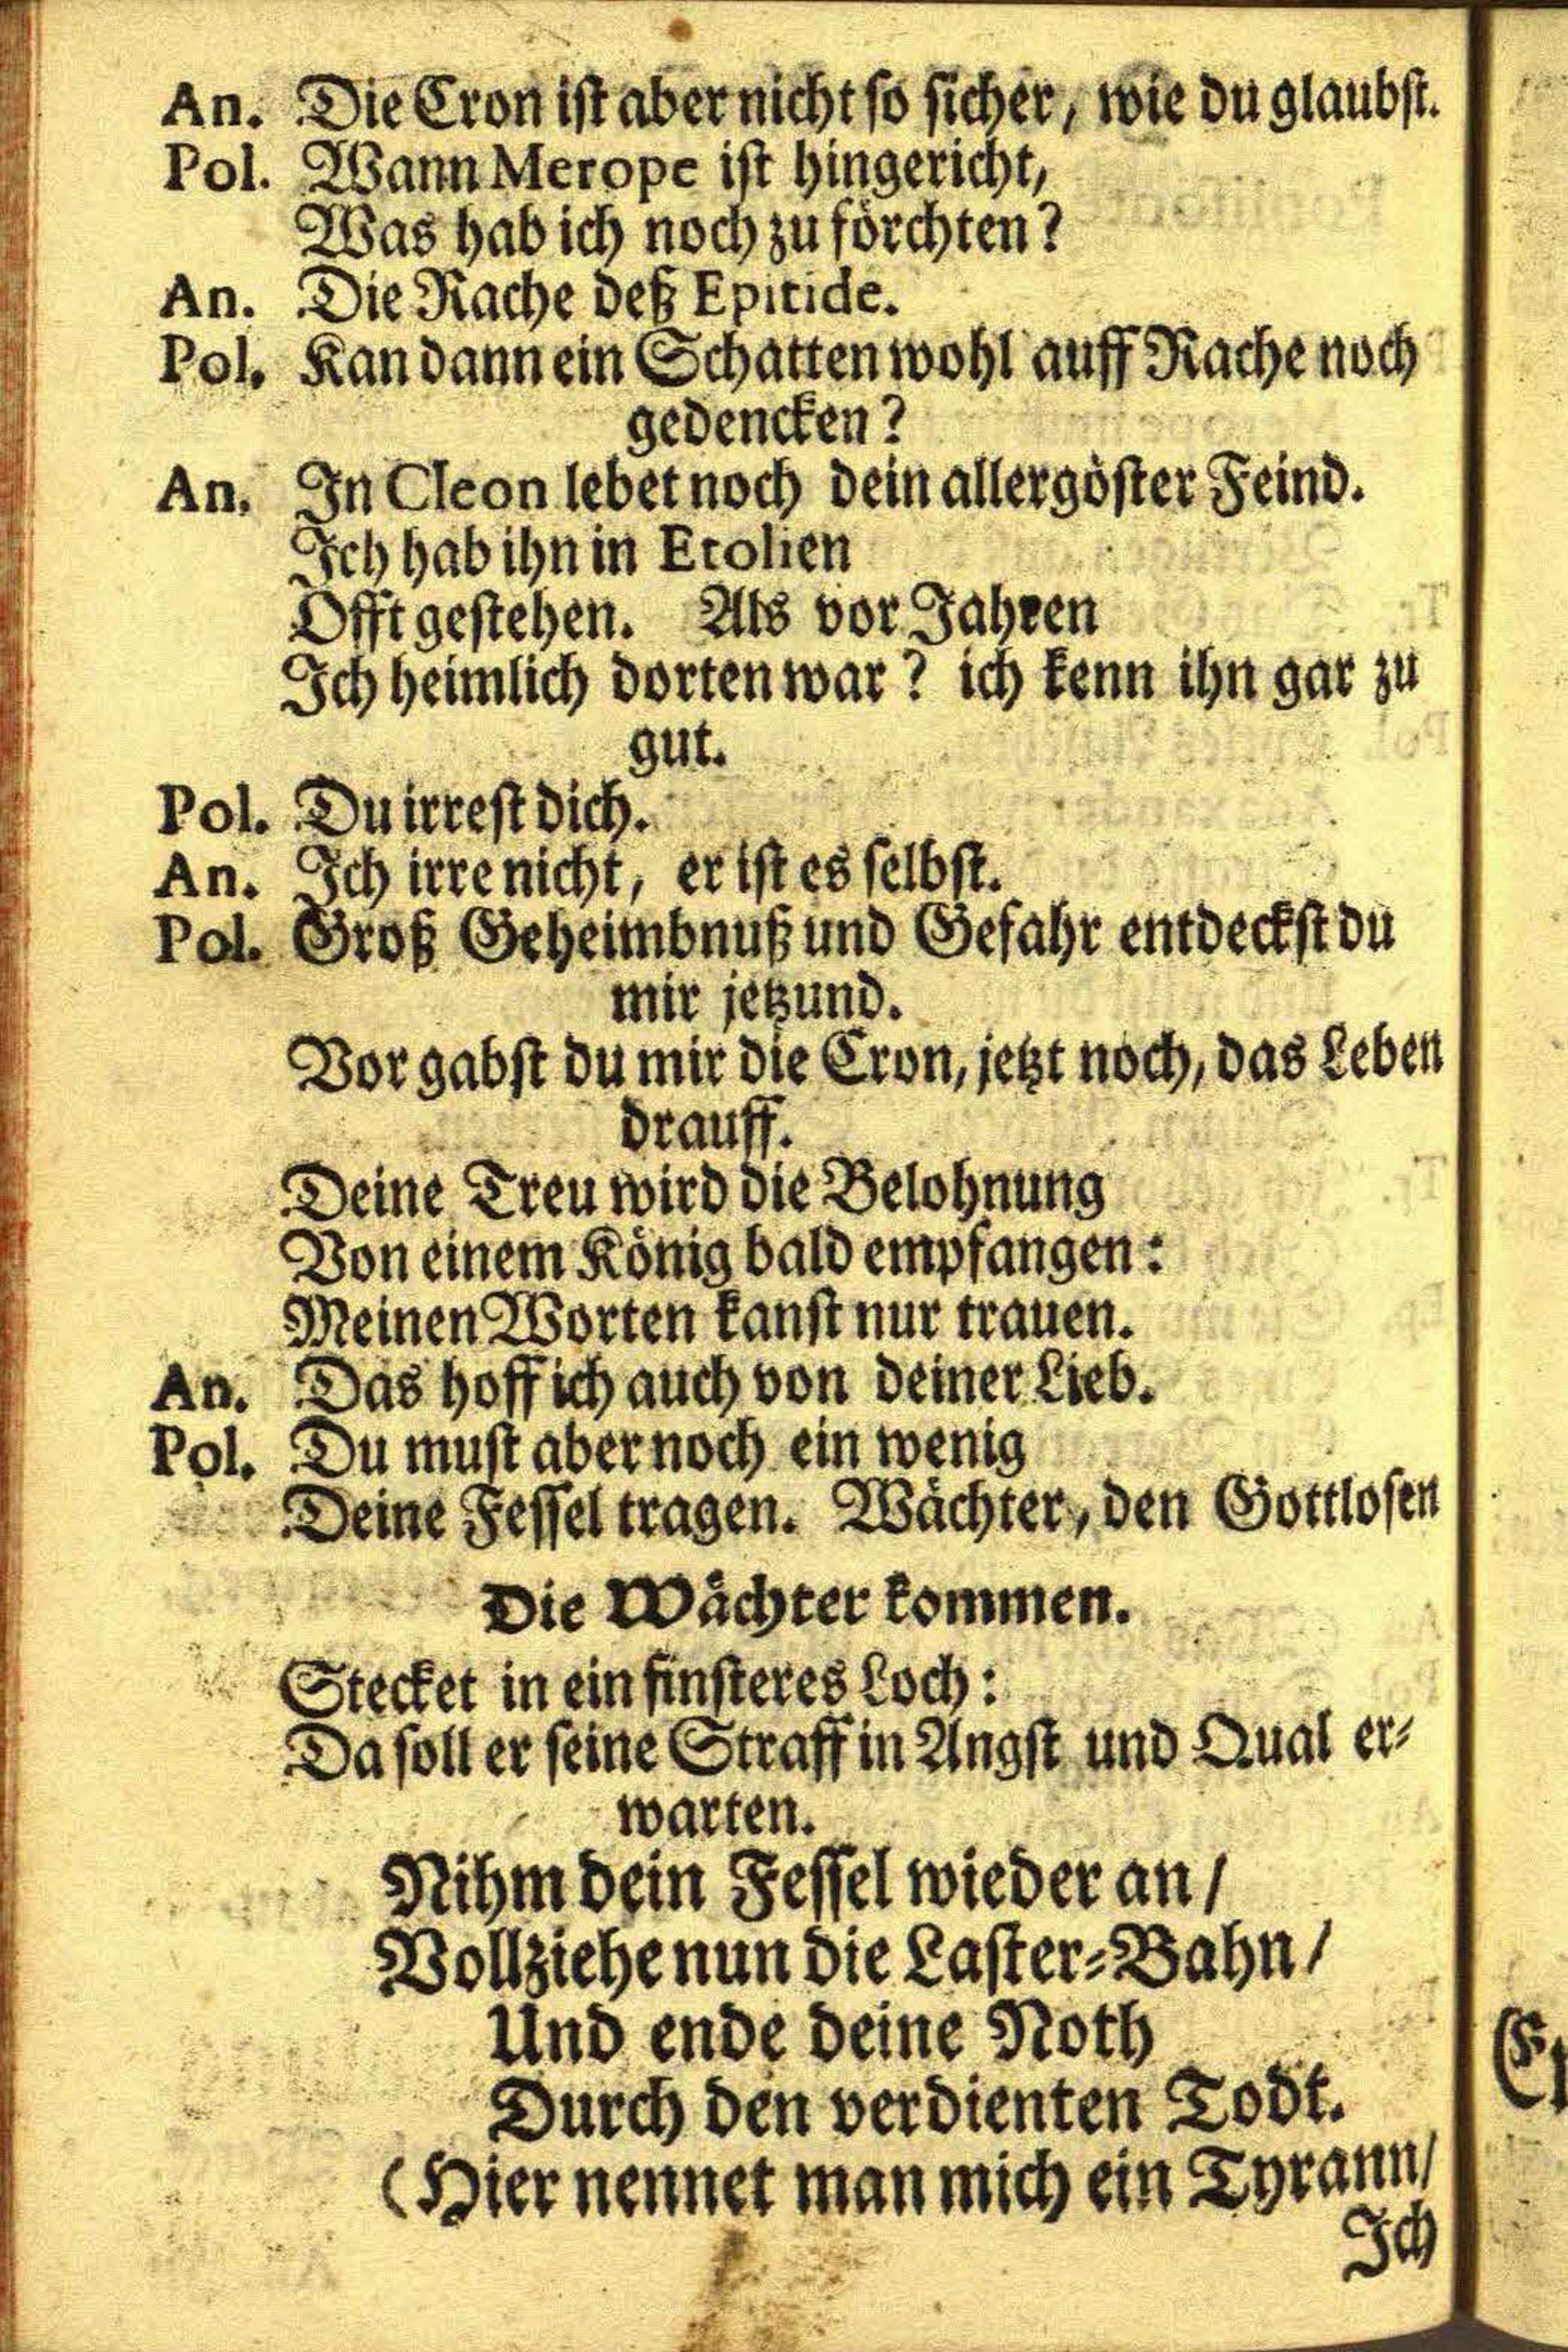 An. Die Cron ist aber nicht so sicher, wie du glaubst.
Pol. Wann Merope ist hingericht,
Was hab ich noch zu förchten?
An. Die Rache deß Epitide.
Pol. Kan dann ein Schatten wohl auff Rache noch
gedencken?
An. In Cleon lebet noch dein allergöster Feind.
Ich hab ihn in Etolien
Offt gestehen. Als vor Jahren
Ich heimlich dorten war? ich kenn ihn gar zu
gut.
Pol. Du irrest dich.
An. Ich irre nicht, er ist es selbst.
Pol. Groß Geheimbnuß und Gefahr entdeckst du
mir jetzund.
Vor gabst du mir die Cron, jetzt noch, das Leben
drauff.
Deine Treu wird die Belohnung
Von einem König bald empfangen:
Meinen Worten kanst nur trauen.
An. Das hoff ich auch von deiner Lieb.
Pol. Du must aber noch ein wenig
Deine Fessel tragen. Wächter, den Gottlosen
Die Wächter kommen.
Stecket in ein finsteres Loch:
Da soll er seine Straff in Angst und Qual er-
warten.
Nihm dein Fessel wieder an/
Vollziehe nun die Laster-Bahn/
Und ende deine Noth
Durch den verdienten Todt.
(Hier nennet man mich ein Tyrann/
Ich